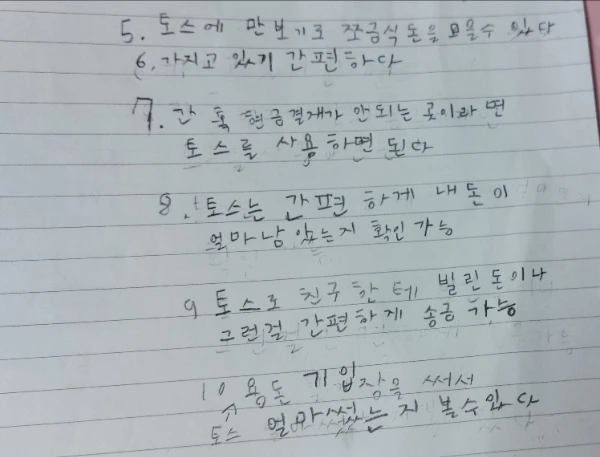 5.토스에 만보기로 쪼금식 돈을 모을수 있다
6. 가지고 있기 간편하다
7. 간혹 현금결제가 안되는 곳이라면
토스를 사용하면 된다
8. 토스는 간편 하게 내돈이
얼마남았는지 확인가능
9 토스로 친구한테 빌린돈이나
그런걸 간편하게 송금 가능
10 용돈 기입장을 써서
토스 얼마썼는지 볼수있다